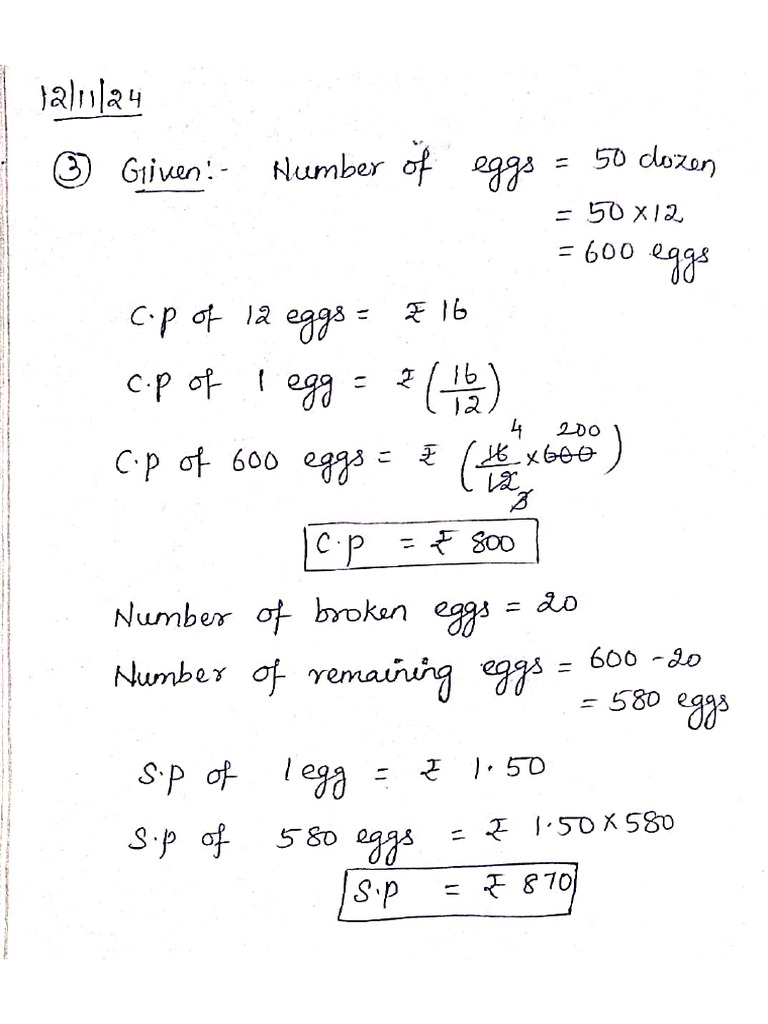 12/11/24
③ Given:- Number of eggs = 50 dozen
= 50 × 12
= 600 eggs
C.p of 12 eggs = ₹ 16
C.p of 1 egg = ₹ (16/12)
C.p of 600 eggs = ₹ (16/12 × 600) 4 200 3
C.p = ₹ 800
Number of broken eggs = 20
Number of remaining eggs = 600 - 20
= 580 eggs
S.p of 1 egg = ₹ 1.50
S.p of 580 eggs = ₹ 1.50 × 580
S.p = ₹ 870